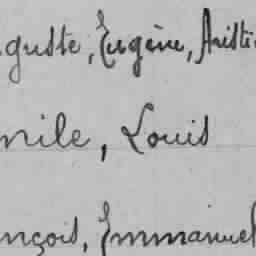 guste, Eugène, Aristi
mile, Louis
nçois, Emmanuel